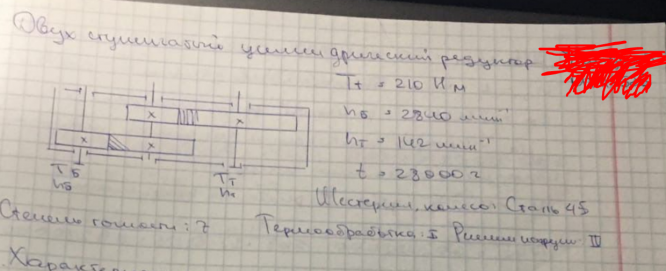 Двух ступенчатый цилиндрический редуктор
Tт = 210 Н м
nб = 2840 мин⁻¹
nт = 142 мин⁻¹
t = 23000 ч
Tб Tт
nб nт
Шестерня, колесо: Сталь 45
Степень точности: 7 Термообработка: I Режим нагрузки IV